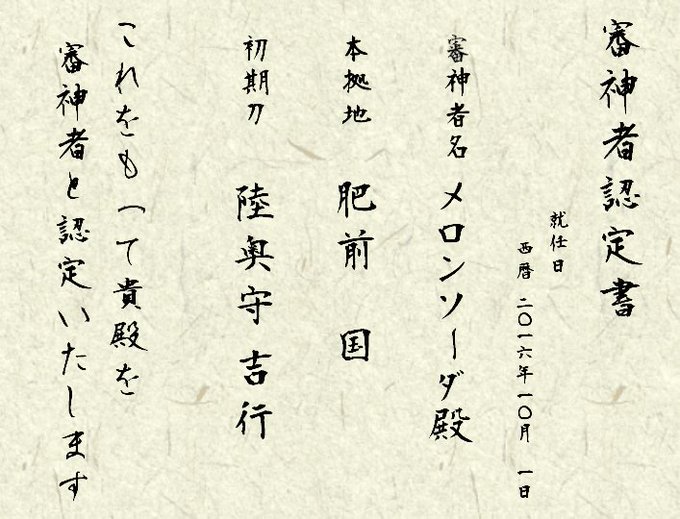 審神者認定書
就任日
西暦 二〇一六年一〇月 一日
審神者名 メロンソーダ殿
本拠地 肥前 国
初期刀 陸奥守吉行
これをもって貴殿を
審神者と認定いたします